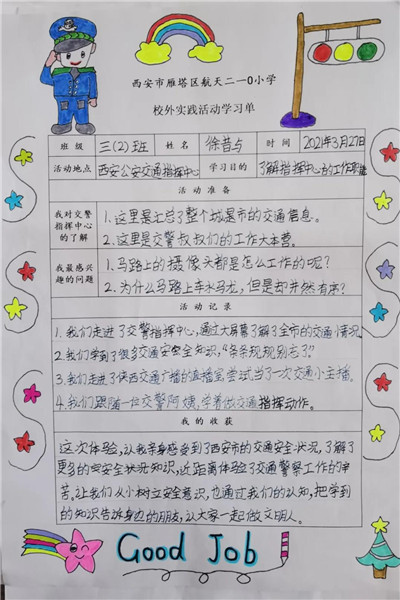 西安市雁塔区航天二一0小学
校外实践活动学习单
班级 三(2)班 姓名 徐昔与 时间 2021年3月27日
活动地点 西安公安交通指挥中心 学习目的 了解指挥中心的工作职能
活动准备
我对交警指挥中心的了解
1.这里是汇总了整个城是市的交通信息。
2.这里是交警叔叔们的工作大本营。
我最感兴趣的问题
1.马路上的摄像头都是怎么工作的呢?
2.为什么马路上车水马龙,但是却井然有序?
活动记录
1.我们走进了交警指挥中心,通过大屏幕了解了全市的交通情况。
2.我们学到了很多交通安全知识,“条条规规别忘了”
3.我们走进了陕西交通广播的直播室尝试当了一次交通小主播。
4.我们跟随一位交警阿姨,学着做交通指挥动作。
我的收获
这次体验,让我亲身感受到了西安市的交通安全状况,了解了
更多的安全状况知识,近距离体验了交通警察工作的辛
苦,让我们从小树立安全意识,也通过我们的认知,把学到
的知识告诉身边的朋友,让大家一起做文明人。
Good Job